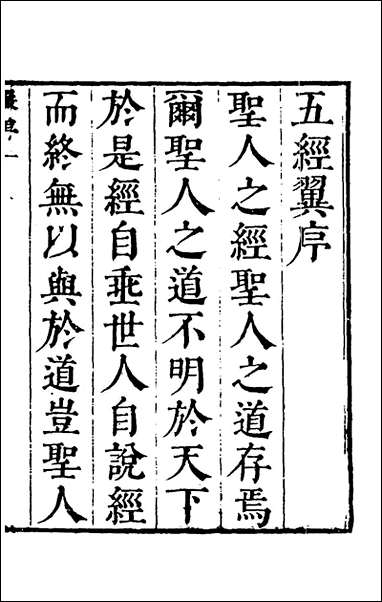 五經翼序
聖人之經聖人之道存焉
爾聖人之道不明於天下
於是經自垂世人自說經
而終無以與於道豈聖人